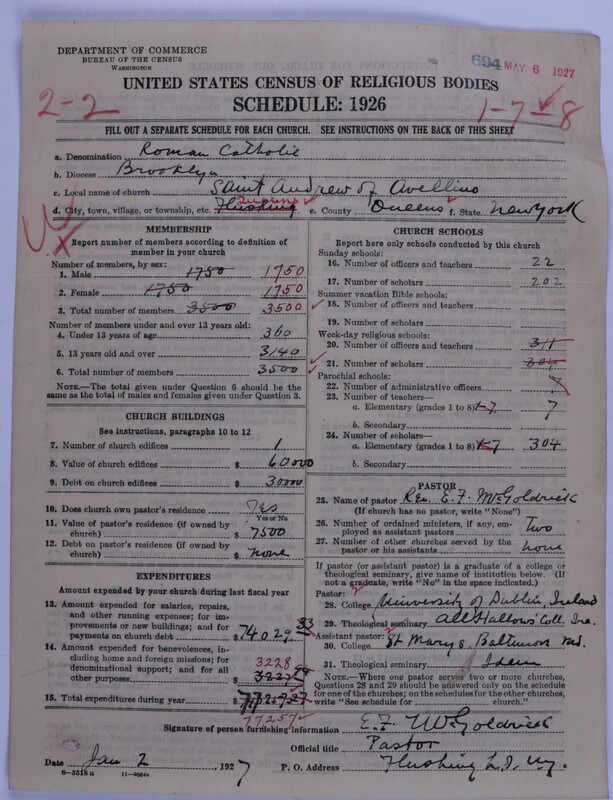 DEPARTMENT OF COMMERCE
BUREAU OF THE CENSUS
WASHINGTON
694 MAY 6 1927
UNITED STATES CENSUS OF RELIGIOUS BODIES
SCHEDULE: 1926
2-2
1-7-8
FILL OUT A SEPARATE SCHEDULE FOR EACH CHURCH. SEE INSTRUCTIONS ON THE BACK OF THIS SHEET
a. Denomination Roman Catholic
b. Diocese Brooklyn
c. Local name of church Saint Andrew of Avellino
d. City, town, village, or township, etc. Flushing Queens e. County Queens f. State New York
MEMBERSHIP
Report number of members according to definition of member in your church
Number of members, by sex:
1. Male 1750 1750
2. Female 1750 1750
3. Total number of members 3500 3500
Number of members under and over 13 years old:
4. Under 13 years of age 360
5. 13 years old and over 3140
6. Total number of members 3500
NOTE.—The total given under Question 6 should be the same as the total of males and females given under Question 3.
CHURCH BUILDINGS
See instructions, paragraphs 10 to 12
7. Number of church edifices 1
8. Value of church edifices $ 60000
9. Debt on church edifices $ 30000
10. Does church own pastor's residence? Yes
Yes or No
11. Value of pastor's residence (if owned by church) $ 7500
12. Debt on pastor's residence (if owned by church) $ none
EXPENDITURES
Amount expended by your church during last fiscal year
13. Amount expended for salaries, repairs, and other running expenses; for improvements or new buildings; and for payments on church debt $ 74029.33
14. Amount expended for benevolences, including home and foreign missions; for denominational support; and for all other purposes 3228 $
15. Total expenditures during year $
77257
CHURCH SCHOOLS
Report here only schools conducted by this church
Sunday schools:
16. Number of officers and teachers 22
17. Number of scholars 202
Summer vacation Bible schools:
18. Number of officers and teachers
19. Number of scholars
Week-day religious schools:
20. Number of officers and teachers
21. Number of scholars 304
Parochial schools:
22. Number of administrative officers
23. Number of teachers—
a. Elementary (grades 1 to 8) 1-7 7
b. Secondary
24. Number of scholars—
a. Elementary (grades 1 to 8) 1-7 304
b. Secondary
PASTOR
25. Name of pastor Rev. E. F. McGoldrick
(If church has no pastor, write "None")
26. Number of ordained ministers, if any, employed as assistant pastors Two
27. Number of other churches served by the pastor or his assistants none
If pastor (or assistant pastor) is a graduate of a college or theological seminary, give name of institution below. (If not a graduate, write "No" in the space indicated.)
Pastor:
28. College University of Dublin, Ireland
29. Theological seminary All Hallows' Coll. Ire.
Assistant pastor:
30. College St Mary's Baltimore Md.
31. Theological seminary Idem
NOTE.—Where one pastor serves two or more churches, Questions 28 and 29 should be answered only on the schedule for one of the churches; on the schedules for the other churches, write "See schedule for ........ church."
Signature of person furnishing information E. F. McGoldrick
Official title Pastor
Date Jan 2, 1927 P. O. Address Flushing L.I. N.Y.